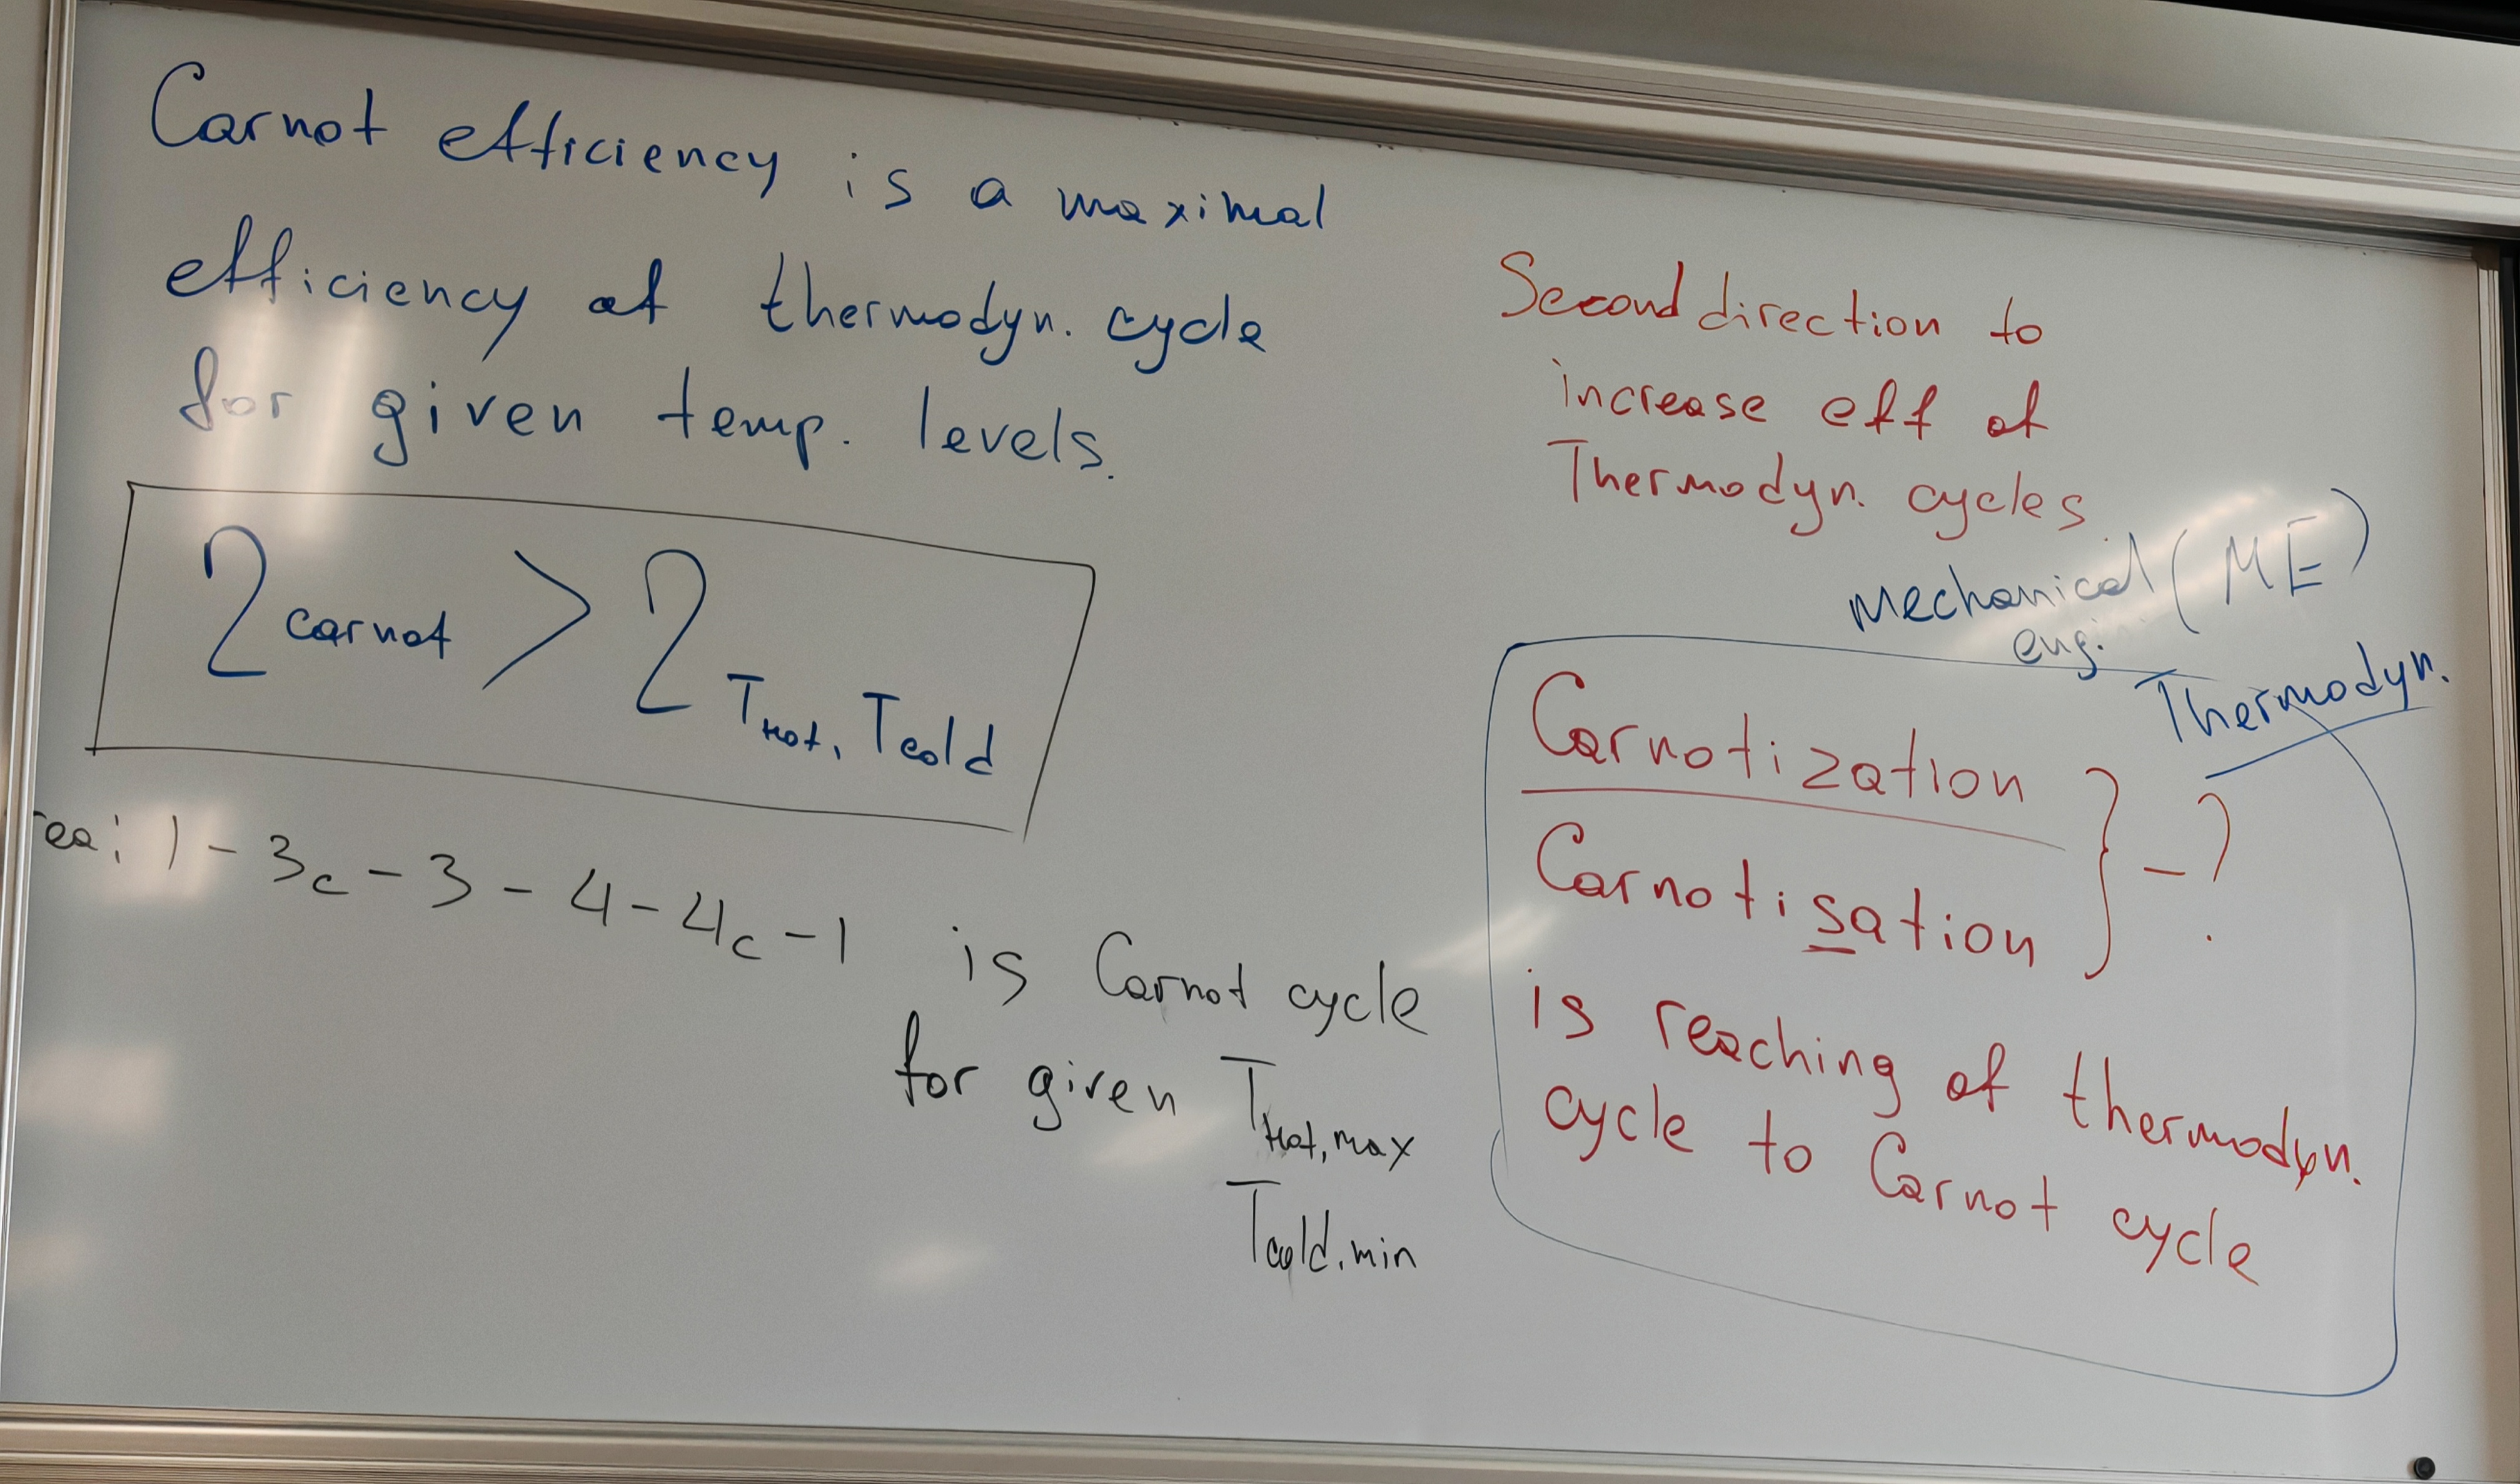 Carnot efficiency is a maximal
efficiency of thermodyn. cycle
for given temp. levels.
η carnot > η T hot, T cold
rea: 1 - 3c - 3 - 4 - 4c - 1 is Carnot cycle
for given T hot, max
T cold, min
Second direction to
increase eff of
Thermodyn. cycles
mechanical (ME)
eng.
Thermodyn.
Carnotization
Carnotisation } - ?
is reaching of thermodyn.
cycle to Carnot cycle